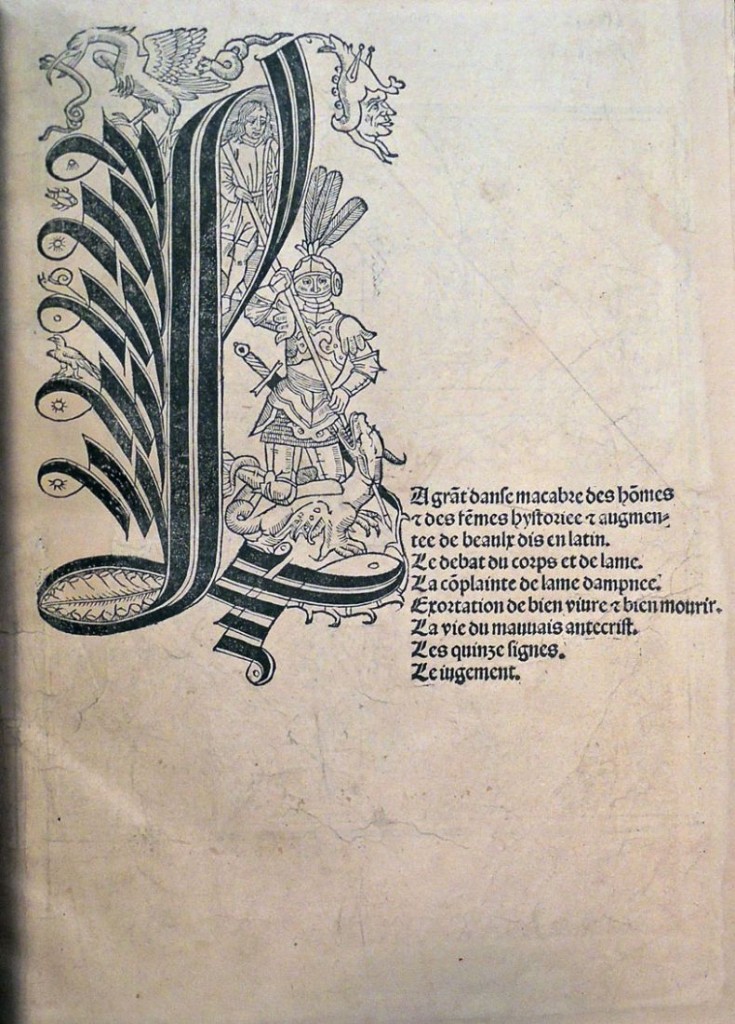 LA grãt danse macabre des hõmes
⁊ des fẽmes hystoriee ⁊ augmen⸗
tee de beaulx dis en latin.
Le debat du corps et de lame.
La cõplainte de lame dampnee.
Exortation de bien viure ⁊ bien mourir.
La vie du mauuais antecrist.
Les quinze signes.
Le iugement.